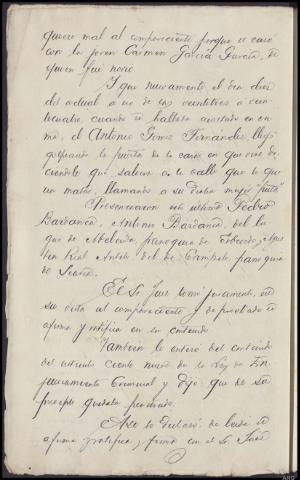 quiere mal al compareciente, porque se casó
con la joven Carmen García García, de
quien fué novio
Y que nuevamente, el dia diez
del actual a eso de las veintitres a vein
ticuatro, cuando se hallaba acostado en ca
ma, el Antonio Gomez Fernández llegó
golpeando la puerta de la casa en que vive di
ciendole que saliera a la calle que lo que
un matar, llamando a su dicha mujer "puta"
Presenciaron esto ultimo Pedro
Bardanca, Antonio Bardanca, del lu
gar de parroquia de
Real del de parroquia
de
El Sr. Juez tomó juramento, en
su vista al compareciente y de probado se
afirma y ratifica en su contenido
Tambien le enteró del contenido
del articulo ciento nueve de la Ley de En
juiciamiento Criminal y dijo que de su
precepto quedaba
Asi lo declaró de leida se
afirma y ratifica, firma con el Sr. Juez